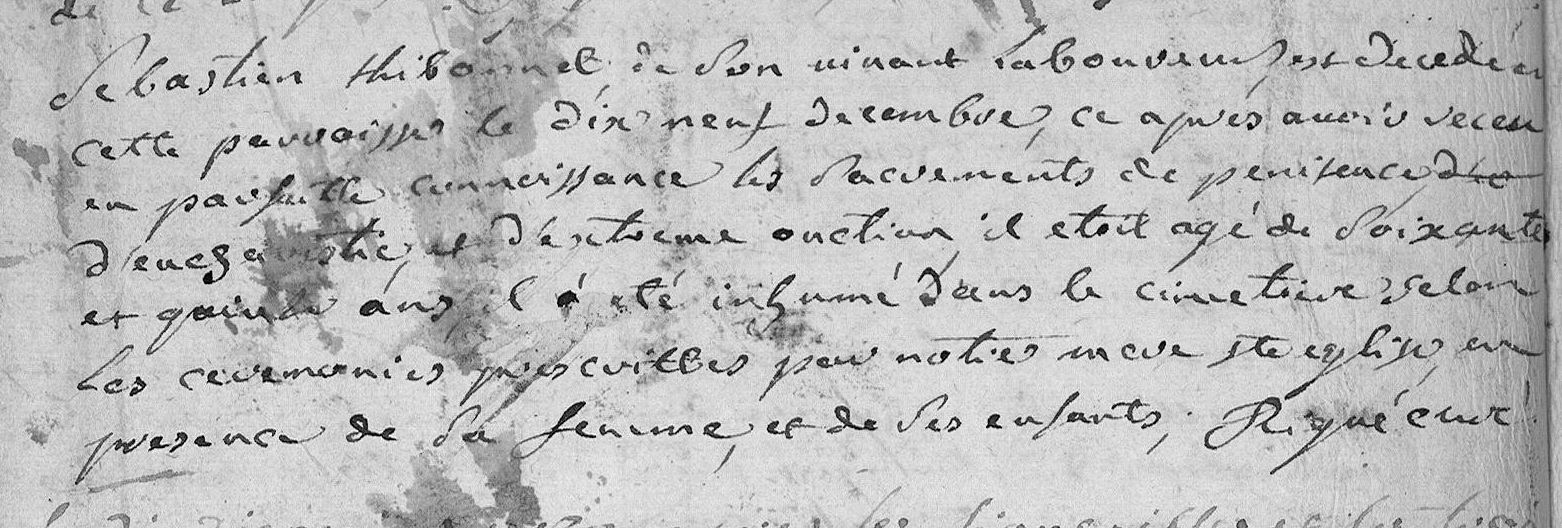 Sebastien thibonnet de son vivant laboureur est decedé en
cette parroisse le dix neuf decembre, ce après avoir receu
en parfaitte connoissance les sacrements de penitence, d'e
d'eucharistie, et d'extreme onction, il etoit agé de soixante
et quinze ans, il a été inhumé dans le cimetiere selon
les ceremonies prescrittes par notre mere ste eglise, en
presence de sa femme, et de ses enfants; Riqué curé